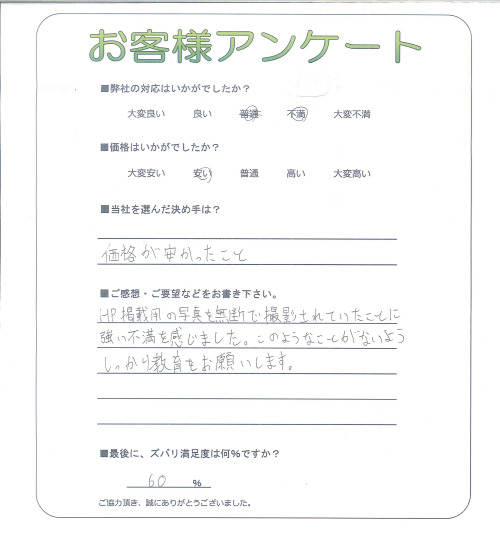 お客様アンケート
■弊社の対応はいかがでしたか？
大変良い 良い 普通 不満 大変不満
■価格はいかがでしたか？
大変安い 安い 普通 高い 大変高い
■当社を選んだ決め手は？
価格が安かったこと
■ご感想・ご要望などをお書き下さい。
HP掲載用の写真を無断で撮影されていたことに
強い不満を感じました。このようなことがないよう
しっかり教育をお願いします。
■最後に、ズバリ満足度は何％ですか？
60 ％
ご協力頂き、誠にありがとうございました。